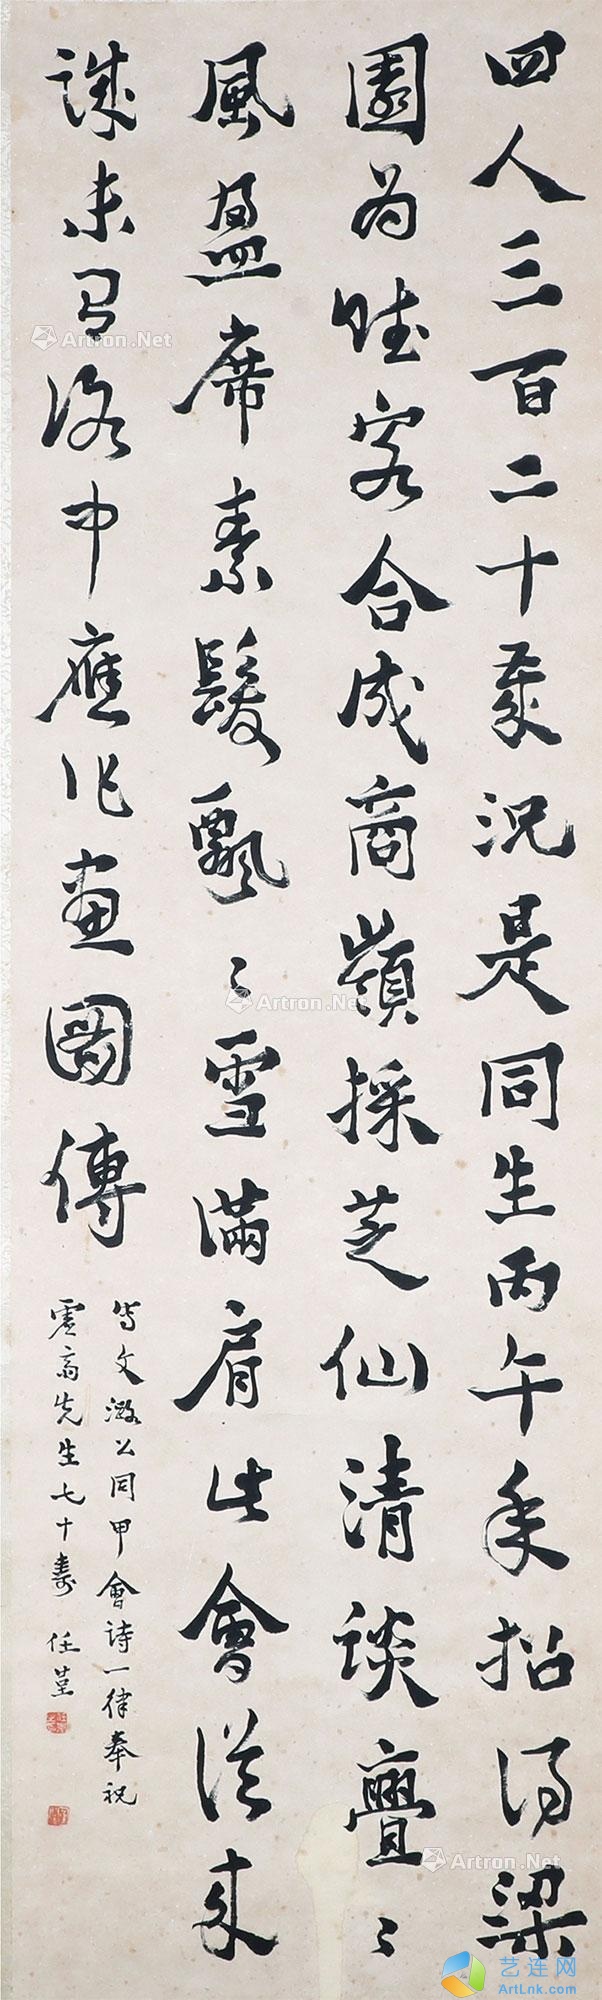 四人三百二十歲況是同生丙午年招得梁
園為賦客合成商嶺採芝仙清談亹〻
風盈席素髮飄〻雪滿肩此會從來
誠未有洛中應作畫圖傳
寫文潞公同甲會詩一律奉祝
虛齋先生七十壽 任堇
Artron.Net
Artron.Net
Artron.Net
艺连网
ArtLnk.com